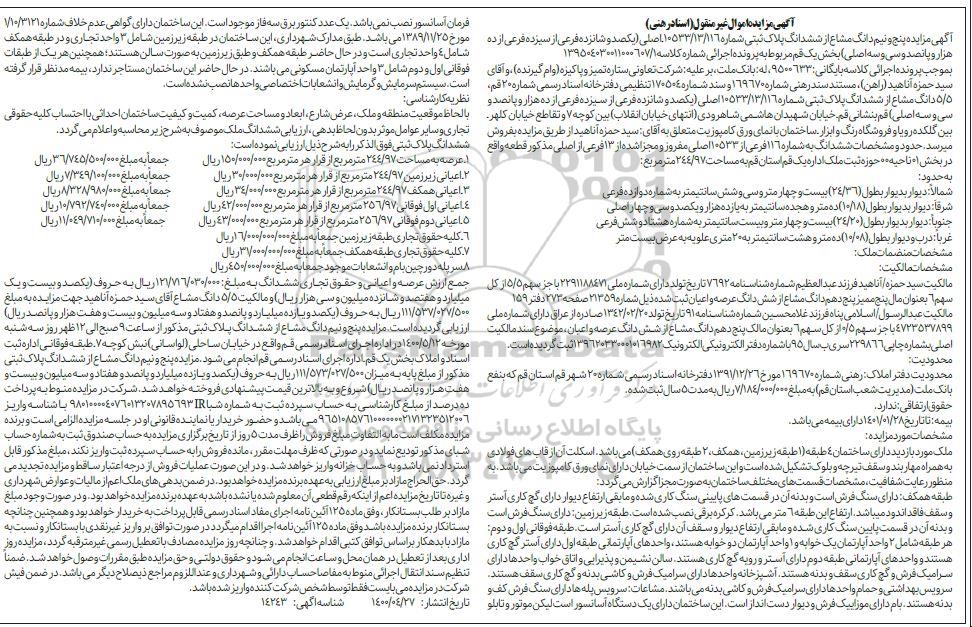 آگهی مزایده اموال غیر منقول (اسناد رهنی)
آگهی مزایده پنج و نیم دانگ مشاع از ششدانگ پلاک ثبتی شماره ۱۰۵۳۳/۱۳/۱۱۶ اصلی (یکصد و شانزده فرعی از سیزده فرعی از ده
هزار و پانصد و سی و سه اصلی) بخش یک قم مربوط به پرونده اجرائی شماره کلاسه ۱۳۹۵۰۴۰۳۰۰۱۱۰۰۰۶۰۷/۱
بموجب پرونده اجرائی کلاسه بایگانی: ۹۵۰۰۶۳۳، له: بانک ملت، بر علیه: شرکت تعاونی ستاره تمیز و پاکیزه (وام گیرنده)، و آقای
سید حمزه آناهید (راهن)، مستند سند رهنی شماره ۱۶۹۶۷۰ و سند شماره ۱۷۰۵۰۴ تنظیمی دفترخانه اسناد رسمی شماره ۲۰ قم،
۵/۵ دانگ مشاع از ششدانگ پلاک ثبتی شماره ۱۰۵۳۳/۱۳/۱۱۶ اصلی (یکصد و شانزده فرعی از سیزده فرعی از ده هزار و پانصد و
سی و سه اصلی) قم بنشانی قم. خیابان شهیدان هاشمی شاهرودی (انتهای خیابان انقلاب) بین کوچه ۷ و تقاطع خیابان کلهر.
بین گلکده رویا و فروشگاه رنگ و ابزار. ساختمان با نمای ورق کامپوزیت متعلق به آقای: سید حمزه آناهید از طریق مزایده بفروش
میرسد. حدود و مشخصات ششدانگ به شماره ۱۱۶ فرعی از ۱۰۵۳۳ اصلی مفروز و مجزا شده از ۱۳ فرعی از اصلی مذکور قطعه واقع
در بخش ۰۱ ناحیه ۰۰ حوزه ثبت ملک اداره یک قم استان قم به مساحت ۲۴۴/۹۷ مترمربع:
به حدود:
شمالاً: دیوار بدیوار بطول (۲۴/۳۶) بیست و چهار متر و سی و شش سانتیمتر به شماره دوازده فرعی
شرقاً: دیوار بدیوار بطول (۱۰/۱۸) ده متر و هجده سانتیمتر به یازده هزار و یکصد و سی و چهار اصلی
جنوباً: دیوار بدیوار بطول (۲۴/۲۰) بیست و چهار متر و بیست سانتیمتر به شماره هشتاد و شش فرعی
غرباً: درب و دیوار بطول (۱۰/۰۸) ده متر و هشت سانتیمتر به ۲۰ متری علویه به عرض بیست متر
مشخصات منضمات ملک:
مشخصات مالکیت:
مالکیت سید حمزه/آناهید فرزند عبدالعظیم شماره شناسنامه ۷۶۹۲ تاریخ تولد دارای شماره ملی ۲۲۹۱۱۸۸۴۷۱ با جز سهم ۵/۵ از کل
سهم ۶ بعنوان مال پنج ممیز پنج دهم دانگ مشاع از شش دانگ عرصه و اعیان ثبت شده ذیل شماره ۲۱۳۵۹ صفحه ۲۷۳ دفتر ۱۵۹
مالکیت عبدالرسول/اسلامی پناه فرزند غلامحسین شماره شناسنامه ۹۱ تاریخ تولد ۱۳۴۲/۰۲/۲۰ صادره از عراق دارای شماره ملی
۴۷۲۳۵۳۷۸۹۹ با جز سهم ۰/۵ از کل سهم ۶ بعنوان مالک پنج دهم دانگ مشاع از شش دانگ عرصه و اعیان، موضوع سند مالکیت
اصلی بشماره چاپی ۲۲۹۸۶۶ سری ب سال ۹۵ با شماره دفتر الکترونیکی الکترونیک ۱۳۹۶۲۰۳۳۰۰۰۱۰۱۶۹۸۲ ثبت گردیده است.
محدودیت:
محدودیت دفتر املاک: رهنی شماره ۱۶۹۶۷۰ مورخ ۱۳۹۱/۱۲/۲۶ دفترخانه اسناد رسمی شماره ۲۰ شهر قم استان قم که بنفع
بانک ملت (مدیریت شعب استان قم) به مبلغ ۷/۱۸۴/۰۰۰/۰۰۰ ریال به مدت ۵ سال ثبت شده.
حقوق ارتفاقی: ندارد.
بیمه: تا تاریخ ۱۴۰۱/۰۱/۲۸ دارای بیمه می باشد.
مشخصات مورد مزایده:
ملک مورد بازدید دارای ساختمان ۴ طبقه (۱ طبقه زیرزمین، همکف، ۲ طبقه روی همکف) می باشد. اسکلت آن از قاب های فولادی
به همراه مهاربند و سقف تیرچه و بلوک تشکیل شده است و این ساختمان از سمت خیابان دارای نمای ورق کامپوزیت می باشد. به
منظور رعایت شفافیت، مشخصات قسمت های مختلف ساختمان به صورت مجزا گزارش می گردد:
طبقه همکف: دارای سنگ فرش است و بدنه آن در قسمت های پایینی سنگ کاری شده و مابقی ارتفاع دیوار دارای گچ کاری آستر
و سقف فاقد اندود میباشد. ارتفاع این طبقه ۶ متر می باشد. کرکره برقی نصب شده است. طبقه زیرزمین: دارای سنگ فرش است
و بدنه آن در قسمت پایین سنگ کاری شده و مابقی ارتفاع دیوار و سقف آن دارای گچ کاری آستر است. طبقه فوقانی اول و دوم:
هر طبقه شامل ۲ واحد آپارتمان یک خوابه و ۱ واحد آپارتمان دو خوابه هستند، واحدهای آپارتمانی طبقه اول دارای آستر گچ کاری
هستند و واحدهای آپارتمانی طبقه دوم دارای آستر و رویه گچ کاری هستند. سالن نشیمن و پذیرایی و اتاق خواب واحدها دارای
سرامیک فرش و گچ کاری سقف و بدنه هستند. آشپزخانه واحدها دارای سرامیک فرش و کاشی بدنه و گچ کاری سقف هستند.
سرویس بهداشتی و حمام واحدها دارای سرامیک فرش و کاشی بدنه می باشند. مشاعات: سرویس پله ها دارای سنگ فرش کف و
بدنه هستند. بام دارای موزاییک فرش و دیوار دست انداز است. این ساختمان دارای یک دستگاه آسانسور است لیکن موتور و تابلو
فرمان آسانسور نصب نمی باشد. یک عدد کنتور برق سه فاز موجود است. این ساختمان دارای گواهی عدم خلاف شماره ۱/۱۰/۳۱۲۱
مورخ ۱۳۸۹/۱۱/۲۵ می باشد. طبق مدارک شهرداری، این ساختمان در طبقه زیرزمین شامل ۳ واحد تجاری و در طبقه همکف
شامل ۴ واحد تجاری است و در حال حاضر طبقه همکف و طبق زیرزمین به صورت سالن هستند؛ همچنین هر یک از طبقات
فوقانی اول و دوم شامل ۳ واحد آپارتمان مسکونی می باشند. در حال حاضر این ساختمان مستاجر ندارد، بیمه مدنظر قرار گرفته
است. سیستم سرمایش و گرمایش و انشعابات اختصاصی واحدها نصب نشده است.
نظریه کارشناسی:
با لحاظ موقعیت منطقه و ملک، عرض شارع، ابعاد و مساحت عرصه، کمیت و کیفیت ساختمان احداثی با احتساب کلیه حقوقی
تجاری و سایر عوامل موثر بدون لحاظ بدهی، ارزیابی ششدانگ ملک موصوف به شرح زیر محاسبه و اعلام می گردد.
ششدانگ پلاک ثبتی فوق الذکر را به شرح ذیل ارزیابی نموده است:
۱. عرصه به مساحت ۲۴۴/۹۷ مترمربع از قرار هر مترمربع ۱۵۰/۰۰۰/۰۰۰ ریال جمعاً به مبلغ ۳۶/۷۴۵/۵۰۰/۰۰۰ ریال
۲. اعیانی زیرزمین ۲۴۴/۹۷ مترمربع از قرار هر مترمربع ۳۰/۰۰۰/۰۰۰ ریال جمعاً به مبلغ ۷/۳۴۹/۱۰۰/۰۰۰ ریال
۳. اعیانی همکف ۲۴۴/۹۷ مترمربع از قرار هر مترمربع ۳۴/۰۰۰/۰۰۰ ریال جمعاً به مبلغ ۸/۳۲۸/۹۸۰/۰۰۰ ریال
۴. اعیانی اول فوقانی ۲۵۶/۹۷ مترمربع از قرار هر مترمربع ۴۲/۰۰۰/۰۰۰ ریال جمعاً به مبلغ ۱۰/۷۹۲/۷۴۰/۰۰۰ ریال
۵. اعیانی دوم فوقانی ۲۵۶/۹۷ مترمربع از قرار هر مترمربع ۴۳/۰۰۰/۰۰۰ ریال جمعاً به مبلغ ۱۱/۰۴۹/۷۱۰/۰۰۰ ریال
۶. کلیه حقوق تجاری طبقه زیرزمین جمعاً به مبلغ ۱۶/۰۰۰/۰۰۰/۰۰۰ ریال
۷. کلیه حقوق تجاری طبقه همکف جمعاً به مبلغ ۳۱/۰۰۰/۰۰۰/۰۰۰ ریال
۸. سرپله دور چین بام و انشعابات موجود جمعاً به مبلغ ۴۵۰/۰۰۰/۰۰۰ ریال
جمع ارزش عرصه و اعیانی و حقوق تجاری ششدانگ به مبلغ: ۱۲۱/۷۱۶/۰۳۰/۰۰۰ ریال به حروف (یکصد و بیست و یک
میلیارد و هفتصد و شانزده میلیون و سی هزار ریال) و مالکیت ۵/۵ دانگ مشاع آقای سید حمزه آناهید جهت مزایده به مبلغ
۱۱۱/۵۳۷/۰۲۷/۵۰۰ ریال به حروف (یکصد و یازده میلیارد و پانصد و هفتاد و سه میلیون و بیست و هفت هزار و پانصد ریال)
ارزیابی گردیده است. مزایده پنج و نیم دانگ مشاع از ششدانگ پلاک ثبتی مذکور از ساعت ۹ صبح الی ۱۲ ظهر روز سه شنبه
مورخه ۱۴۰۰/۵/۱۲ در اداره اجرای اسناد رسمی قم واقع در خیابان ساحلی (لواسانی) نبش کوچه ۷. طبقه فوقانی اداره ثبت
اسناد و املاک بخش یک قم. اداره اجرای اسناد رسمی قم انجام می شود. مزایده پنج و نیم دانگ مشاع از ششدانگ پلاک ثبتی
مذکور از مبلغ پایه به میزان ۱۱۱/۵۷۳/۰۲۷/۵۰۰ ریال به حروف (یکصد و یازده میلیارد و پانصد و هفتاد و سه میلیون و بیست و
هفت هزار و پانصد ریال) شروع و به بالاترین قیمت پیشنهادی فروخته خواهد شد. شرکت در مزایده منوط به پرداخت
ده درصد از مبلغ کارشناسی به حساب سپرده ثبت به شماره شبا IR ۹۸۰۱۰۰۰۰۴۰۷۶۰۱۳۲۰۷۸۹۵۶۹۳ با شناسه واریز
۹۶۵۱۰۸۵۷۶۱۰۰۰۰۰۰۲۱۷۱۳۲۳۵۱۲۰۰۶ می باشد و حضور خریدار یا نماینده قانونی او در جلسه مزایده الزامی است و برنده
مزایده مکلف است مابه التفاوت مبلغ فروش را ظرف مدت ۵ روز از تاریخ برگزاری مزایده به حساب صندوق ثبت به شماره حساب
شبای مذکور تودیع نماید و در صورتی که ظرف مهلت مقرر، مانده فروش را به حساب سپرده ثبت واریز نکند، مبلغ مذکور قابل
استرداد نمی باشد و به حساب خزانه واریز خواهد شد. و در این صورت عملیات فروش از درجه اعتبار ساقط و مزایده تجدید می
گردد. حق الحراج مازاد بر مبلغ ارزیابی به عهده برنده مزایده خواهد بود. در ضمن بدهی های ملک اعم از مالیات و عوارض شهرداری
و غیره تا تاریخ مزایده اعم از اینکه رقم قطعی آن معلوم شده یا نشده باشد به عهده برنده مزایده خواهد بود. و در صورت وجود مبلغ
مازاد بر طلب بستانکار، وفق ماده ۱۲۵ آئین نامه اجرای مفاد اسناد رسمی قابل پرداخت به خریدار خواهد بود و همچنین چنانچه
بستانکار برنده مزایده باشد وفق ماده ۱۲۵ آئین نامه اجرا اقدام میگردد در صورت توافق بر واریز غیر نقدی با بستانکار و نسبت به
مازاد با بدهکار براساس توافق کتبی اقدام خواهد شد. و چنانچه روز مزایده مصادف با تعطیل رسمی غیر مترقبه گردد، مزایده روز
اداری بعد از تعطیل در همان محل و ساعت انجام می شود و حقوق دولتی و حق مزایده طبق مقررات وصول خواهد شد. ضمناً
تنظیم سند انتقال اجرائی منوط به مفاصا حساب دارائی و شهرداری و عنداللزوم مراجع ذیصلاح دیگر می باشد. در ضمن فیش
شرکت در مزایده می بایست فقط توسط شخص شرکت کننده واریز شده باشد.
تاریخ انتشار: ۱۴۰۰/۰۴/۲۷ شناسه آگهی: ۱۴۲۴۳